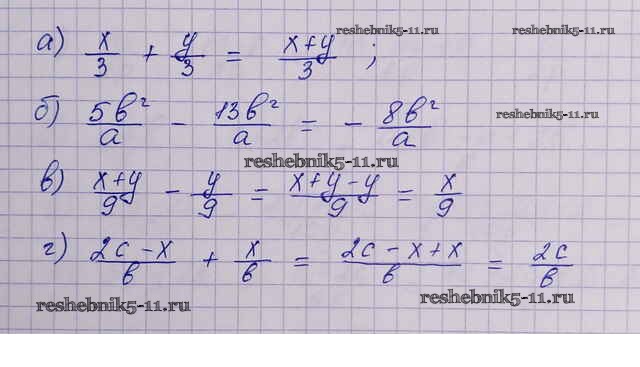 reshebnik5-11.ru reshebnik5-11.ru
а) x/3 + y/3 = (x+y)/3 ;
б) 5b²/a − 13b²/a = − 8b²/a reshebnik5-11.ru
reshebnik5-11.ru
в) (x+y)/9 − y/9 = (x+y−y)/9 = x/9
г) (2c−x)/b + x/b = (2c−x+x)/b = 2c/b
reshebnik5-11.ru reshebnik5-11.ru